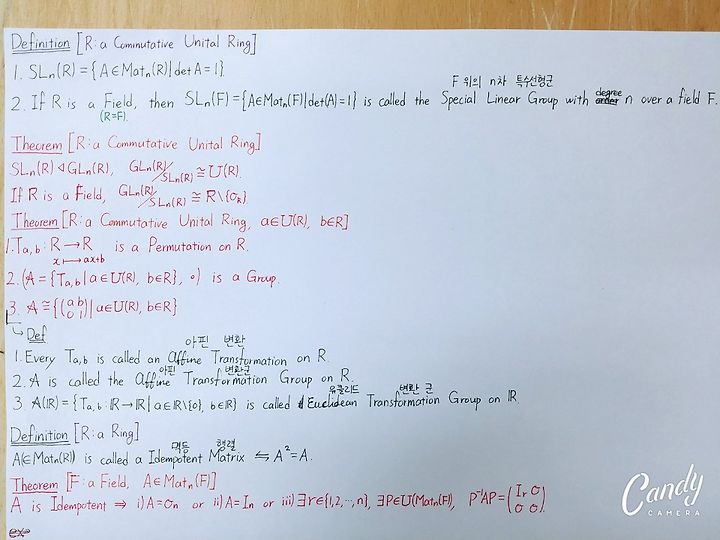 Definition [R: a Commutative Unital Ring]
1. SLn(R) = {A∈Matn(R) | det A = 1}.
F 위의 n차 특수선형군
2. If R is a Field, then SLn(F) = {A∈Matn(F) | det(A) = 1} is called the Special Linear Group with degree n over a field F.
(R=F).
Theorem [R: a Commutative Unital Ring]
SLn(R) ◁ GLn(R), GLn(R)/SLn(R) ≅ U(R).
If R is a Field, GLn(R)/SLn(R) ≅ R\{0R}
Theorem [R: a Commutative Unital Ring, a∈U(R), b∈R]
1. Ta,b : R → R is a Permutation on R.
x ↦ ax+b
2. (A = {Ta,b | a∈U(R), b∈R}, ∘) is a Group.
3. A ≅ {(a b; 0 1) | a∈U(R), b∈R}
↳ Def
아핀 변환
1. Every Ta,b is called an Affine Transformation on R.
아핀 변환군
2. A is called the Affine Transformation Group on R.
유클리드 변환 군
3. A(ℝ) = {Ta,b : ℝ→ℝ | a∈ℝ\{0}, b∈ℝ} is called Euclidean Transformation Group on ℝ.
Definition [R: a Ring]
멱등 행렬
A(∈Matn(R)) is called a Idempotent Matrix ⇋ A² = A.
Theorem [F: a Field, A∈Matn(F)]
A is Idempotent ⇒ i) A = On or ii) A = In or iii) ∃r∈{1,2,⋯,n}, ∃P∈U(Matn(F)), P⁻¹AP = (Ir O; O O).
Candy
CAMERA